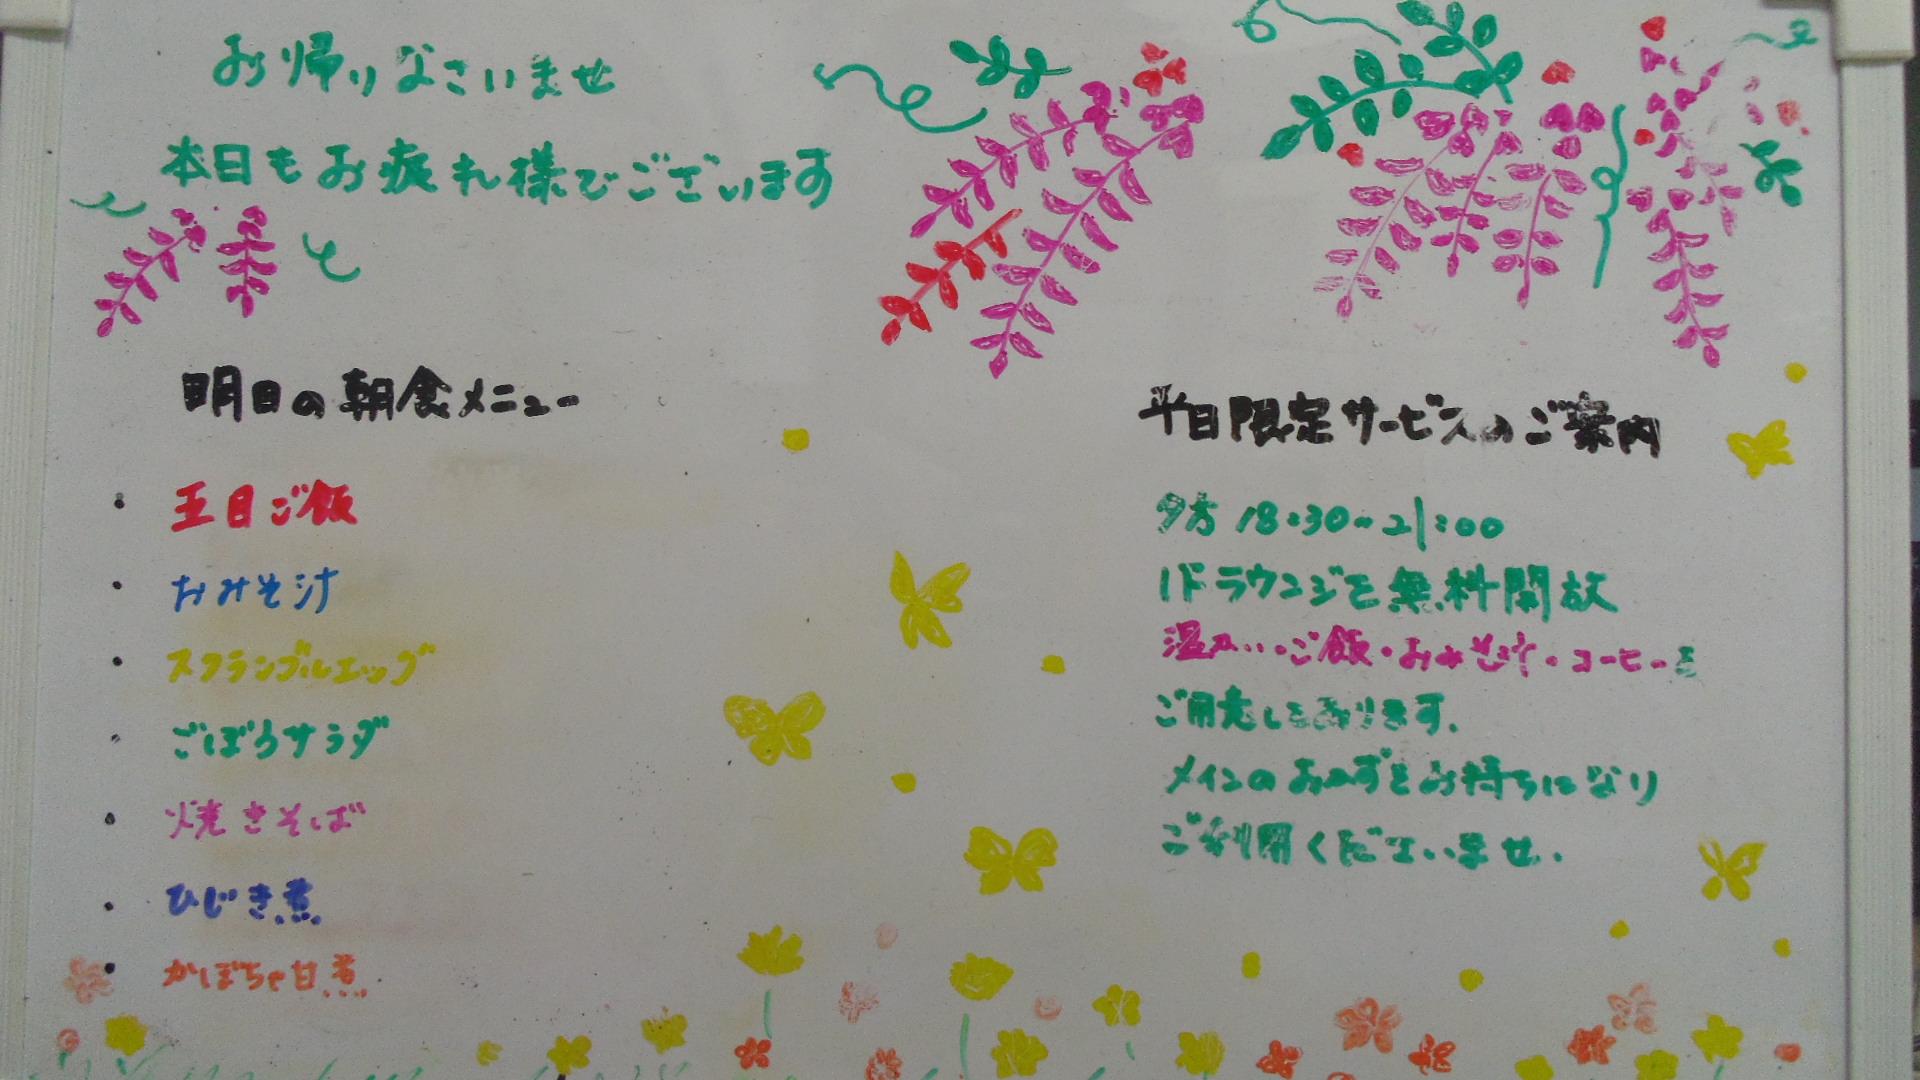 お帰りなさいませ
本日もお疲れ様でございます
明日の朝食メニュー
・五目ご飯
・おみそ汁
・スクランブルエッグ
・ごぼうサラダ
・焼きそば
・ひじき煮
・かぼちゃ甘煮
平日限定サービスのご案内
夕方18:30~21:00
1Fラウンジを無料開放
温かい・ご飯・おみそ汁・コーヒーを
ご用意しております。
メインのおかずをお持ちになり
ご利用くださいませ。